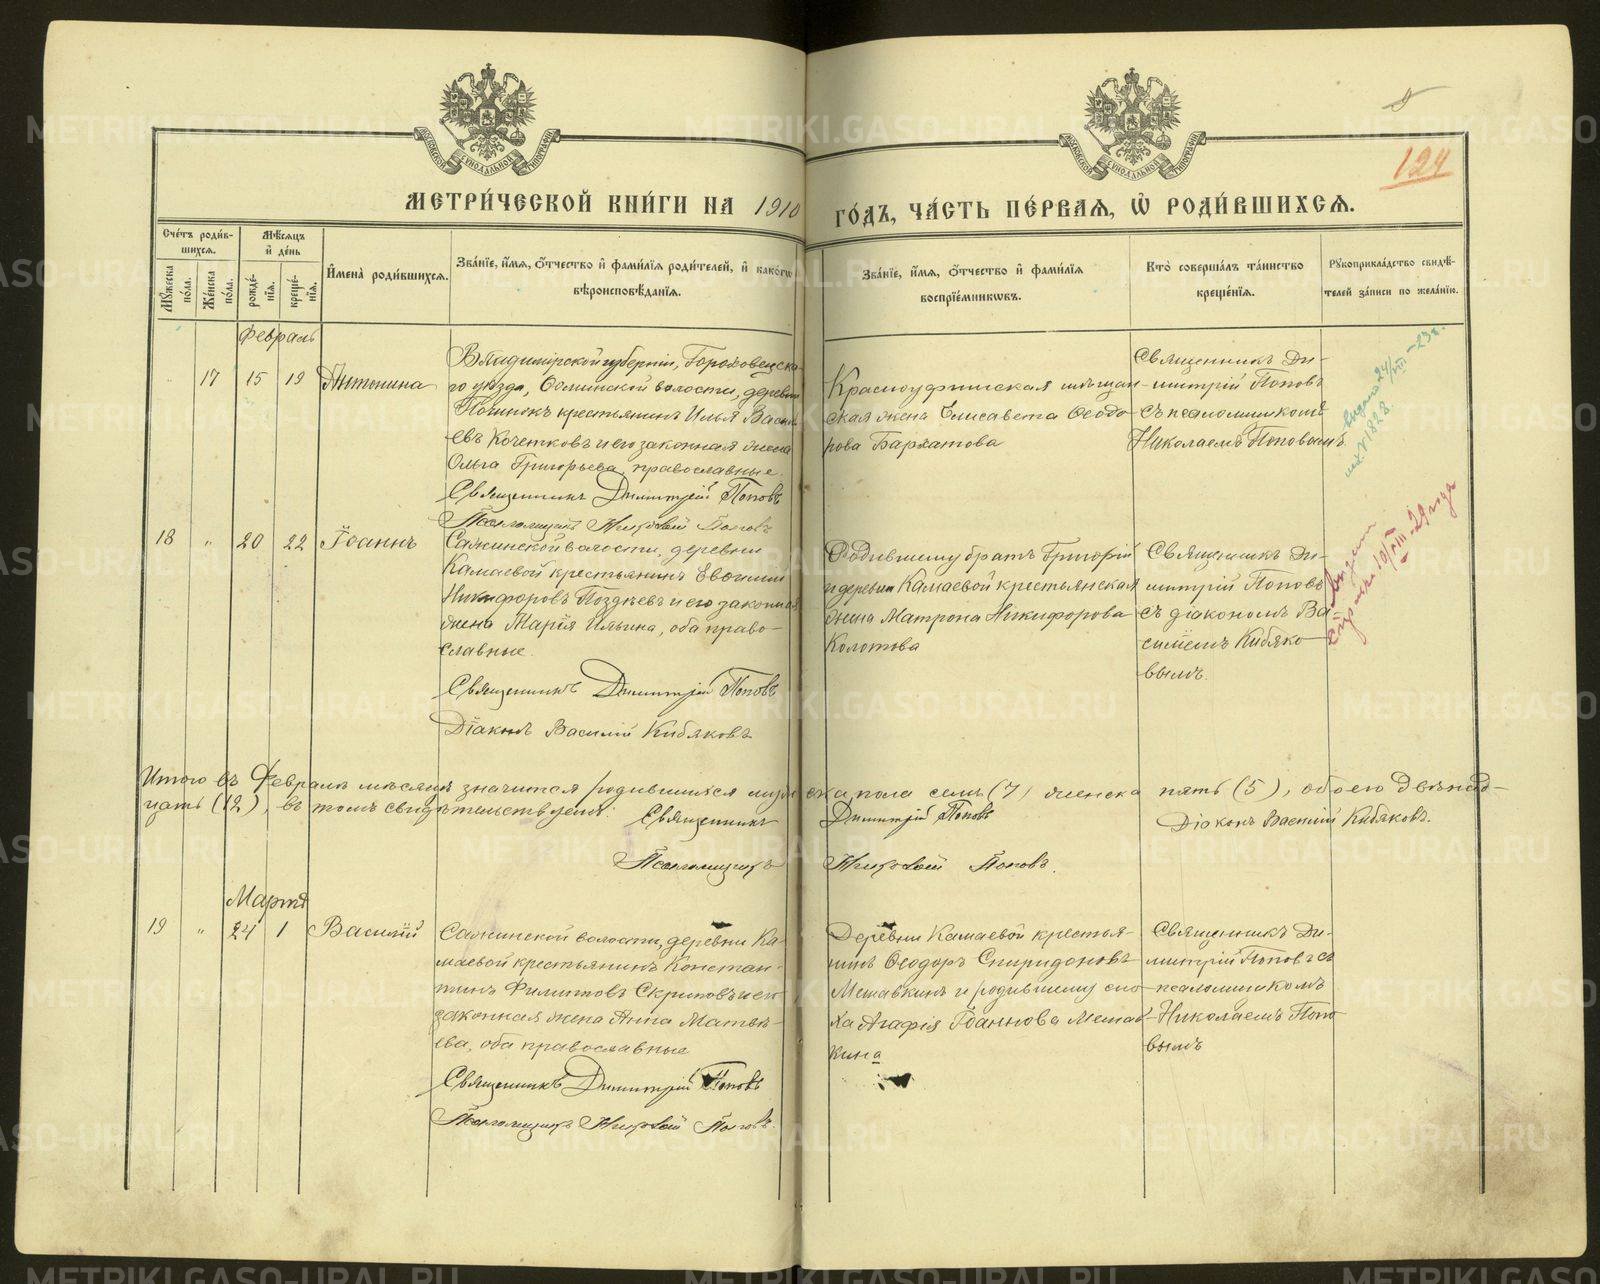 МЕТРИ́ЧЕСКОЙ КНИ́ГИ НА 1910
ГО́ДЪ, ЧА́СТЬ ПЕ́РВАѦ, Ѡ҆ РОДИ́ВШИХСѦ.
124
Сче́тъ роди́в-
шихсѧ.
Мѣ́сѧцъ
и҆ де́нь
Мꙋ́жеска по́ла.
Же́нска по́ла.
рожде́-
нїѧ.
креще́-
нїѧ.
И҆мена̀ роди́вшихсѧ.
Зва́нїе, и҆́мѧ, ѻ҆́тчество и҆ фами́лїѧ роди́телей, и҆ како́гѡ
вѣроисповѣ́данїѧ.
Зва́нїе, и҆́мѧ, ѻ҆́тчество и҆ фами́лїѧ
воспрїе́мникѡвъ.
Кто̀ соверша́лъ та́инство
креще́нїѧ.
Рꙋкоприкла́дство свидѣ́-
телей за́писи по жела́нїю.
Февраль
17 15 19 Антонина
Владимірской губерніи, Гороховецска-
го уѣзда, волости, деревни
Починокъ крестьянинъ Илья Василь
евъ Кочетковъ и его законная жена
Ольга Григорьева, православные.
Священникъ Димитрій Поповъ
Псаломщикъ Николай Поповъ
Красноуфимская мѣщан-
ская жена Елисавета Ѳеодо-
рова Бархатова
Священникъ Ди-
митрій Поповъ
съ псаломщикомъ
Николаемъ Поповымъ
18 " 20 22 Іоаннъ
Сажинской волости, деревни
Камаевой крестьянинъ Евѳимій
Никифоровъ Поздѣевъ и его законная
жена Марія Ильина, оба право-
славные.
Священникъ Димитрій Поповъ
Діаконъ Василій Кибяковъ
Родившему братъ Григорій
и деревни Камаевой крестьянская
жена Матрона Никифорова
Колотова
Священникъ Ди-
митрій Поповъ
съ діакономъ Ва-
силіемъ Кибяко-
вымъ.
Итого въ Февралѣ мѣсяцѣ значится родившихся мужеска пола семь (7) женска пять (5), обоего двѣнад-
цать (12), въ томъ свидѣтельствуемъ:
Священникъ Димитрій Поповъ
Діаконъ Василій Кибяковъ.
Псаломщикъ Николай Поповъ.
Мартъ
19 " 24 1 Василій
Сажинской волости, деревни Ка-
маевой крестьянинъ Констан-
тинъ Филиповъ Скриповъ и его
законная жена Анна Матвѣ-
ева, оба православные
Священникъ Димитрій Поповъ
Псаломщикъ Николай Поповъ.
Деревни Камаевой крестья-
нинъ Ѳеодоръ Спиридоновъ
Мешавкинъ и родившему сно-
ха Агафія Іоаннова Мешав-
кина
Священникъ Ди-
митрій Поповъ съ
псаломщикомъ
Николаемъ Попо-
вымъ
METRIKI.GASO-URAL.RU